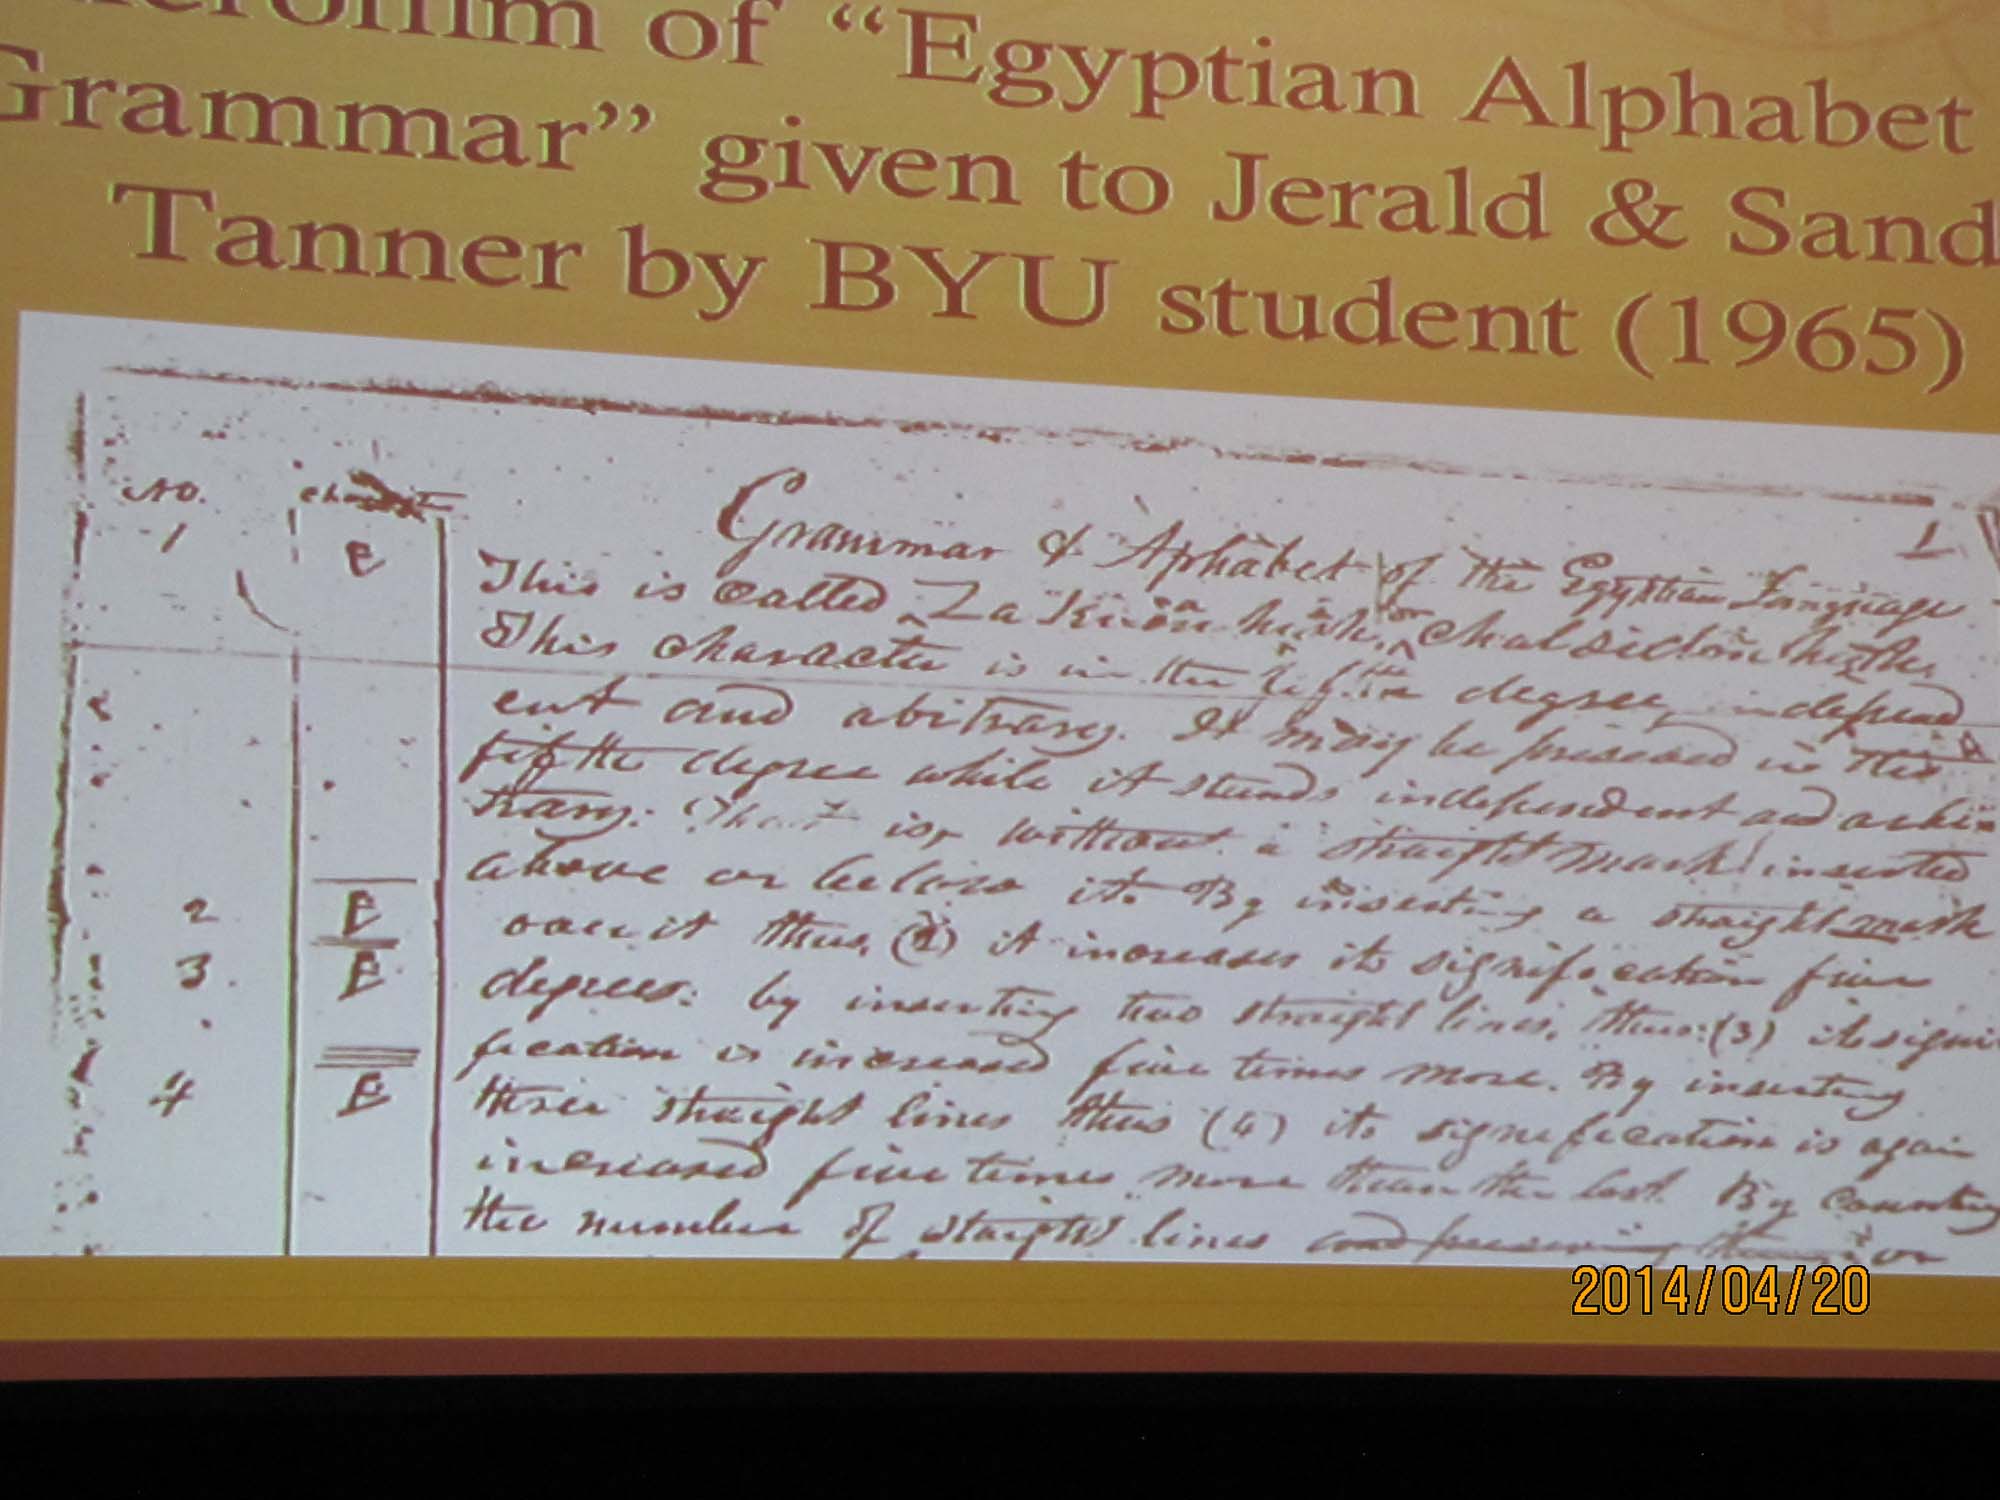 of “Egyptian Alphabet
Grammar” given to Jerald & Sand
Tanner by BYU student (1965)
No.
1
Grammar & Aphabet of the Egyptian Language
1
This is called Za Ki
This character is in the fifth degree, independ
ent and abitrary. It may be preserved in the
fifth degree while it stands independent and arbi
trary: That is, without a straight mark inserted
above or below it. By inserting a straight mark
2
over it thus, (2) it increases its signification five
3.
degrees: by inserting two straight lines, thus: (3) its signi
fication is increased five times more. By inserting
4
three straight lines thus (4) its signification is again
increased five times more than the last. By counting
the number of straight lines or
2014/04/20